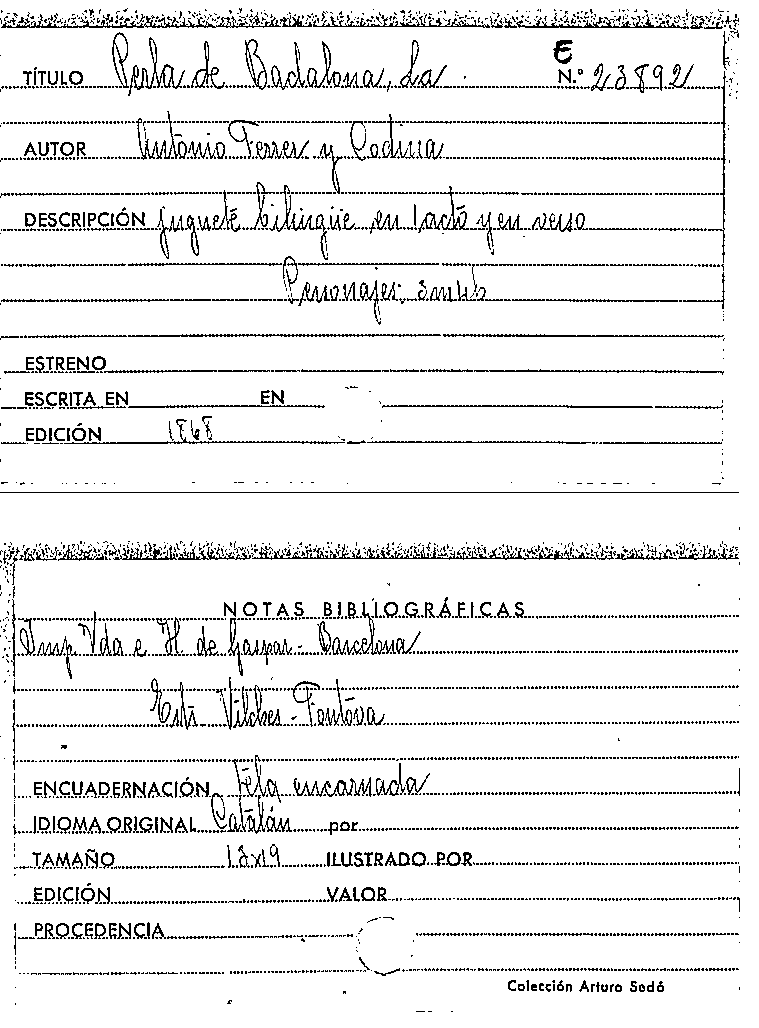 E
TÍTULO Perla de Badalona, La. N.º 23892
AUTOR Antonio Ferrer y Codina
DESCRIPCIÓN juguete bilingüe en 1 acto y en verso
Personajes: 3m4h
ESTRENO
ESCRITA EN EN
EDICIÓN 1868
NOTAS BIBLIOGRÁFICAS
Imp. Vda e H. de Gaspar - Barcelona
Vilches - Fontova
ENCUADERNACIÓN tela encarnada
IDIOMA ORIGINAL Catalán por
TAMAÑO 13x19 ILUSTRADO POR
EDICIÓN VALOR
PROCEDENCIA
Colección Arturo Sedó